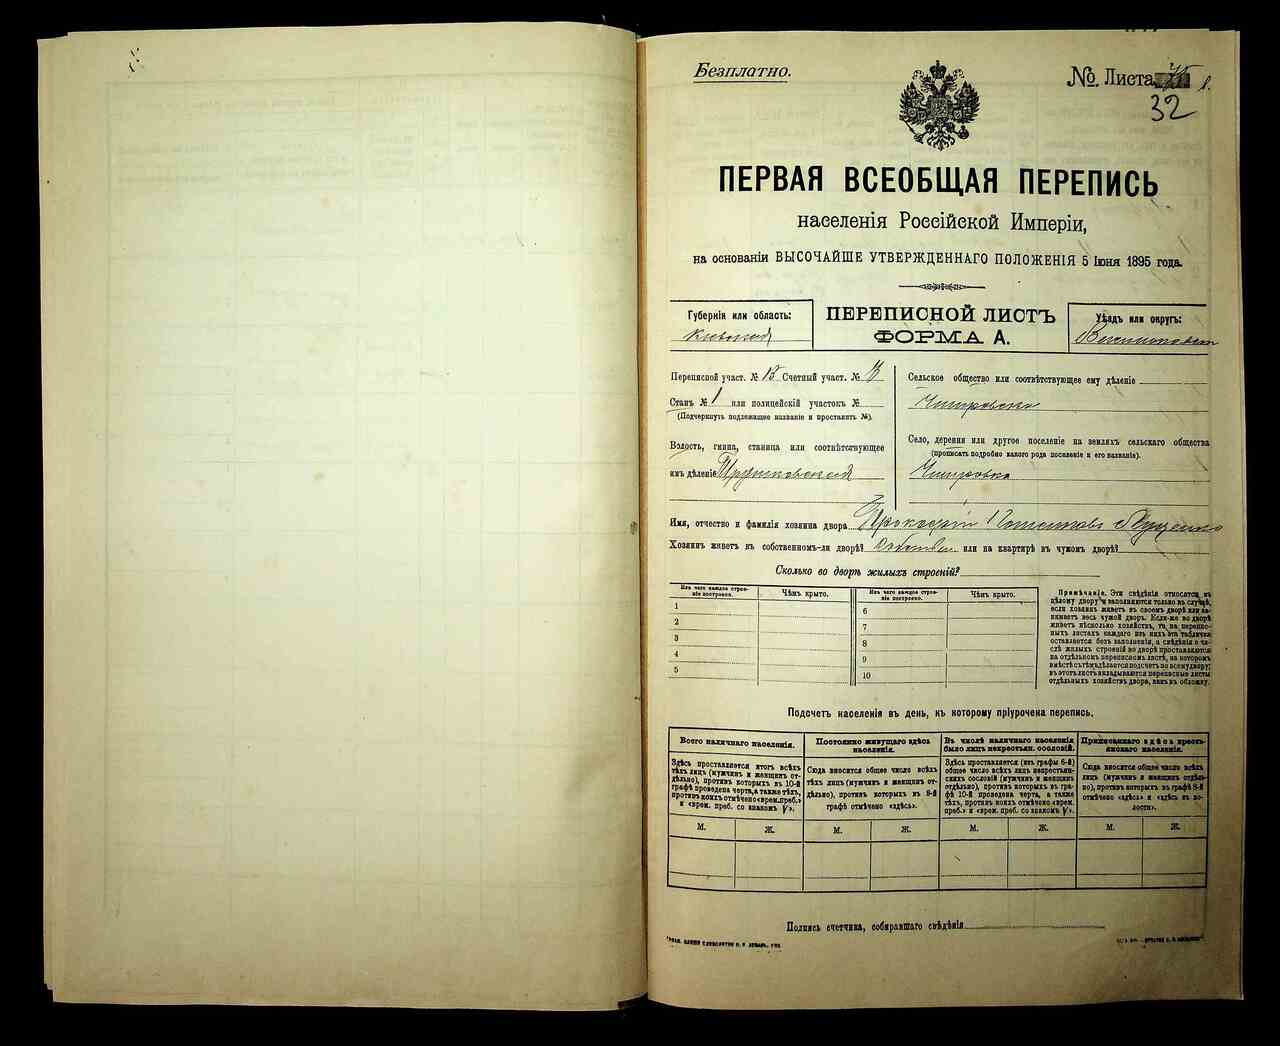 Безплатно.
№. Листа
32
ПЕРВАЯ ВСЕОБЩАЯ ПЕРЕПИСЬ
населенія Россійской Имперіи,
на основаніи ВЫСОЧАЙШЕ УТВЕРЖДЕННАГО ПОЛОЖЕНІЯ 5 Іюня 1895 года.
Губернія или область:
Кіевская
ПЕРЕПИСНОЙ ЛИСТЪ
ФОРМА А.
Уѣздъ или округъ:
Переписной участ. № 15 Счетный участ. №
Станъ № 1 или полицейскій участокъ №
(Подчеркнуть подлежащее названіе и проставить №).
Волость, гмина, станица или соотвѣтствующее
имъ дѣленіе
Сельское общество или соотвѣтствующее ему дѣленіе
Село, деревня или другое поселеніе на земляхъ сельскаго общества
(прописать подробно какого рода поселеніе и его названіе).
Имя, отчество и фамилія хозяина двора
Хозяинъ живетъ въ собственномъ-ли дворѣ? или на квартирѣ въ чужомъ дворѣ?
Сколько во дворѣ жилыхъ строеній?
Изъ чего каждое строеніе построено.
Чѣмъ крыто.
1
2
3
4
5
Изъ чего каждое строеніе построено.
Чѣмъ крыто.
6
7
8
9
10
Примѣчаніе. Эти свѣдѣнія относятся къ
цѣлому двору и заполняются только въ случаѣ,
если хозяинъ живетъ въ своемъ дворѣ или за-
нимаетъ весь чужой дворъ. Если-же во дворѣ
живетъ нѣсколько хозяйствъ, то на перепис-
ныхъ листахъ каждаго изъ нихъ эта табличка
оставляется безъ заполненія, а свѣдѣнія о чи-
слѣ жилыхъ строеній во дворѣ проставляются
на отдѣльномъ переписномъ листѣ, на которомъ
вмѣстѣ съ тѣмъ дѣлается подсчетъ по всему двору;
въ этотъ листъ вкладываются переписные листы
отдѣльныхъ хозяйствъ двора, какъ въ обложку.
Подсчетъ населенія въ день, къ которому пріурочена перепись.
Всего наличнаго населенія.
Здѣсь проставляется итогъ всѣхъ
тѣхъ лицъ (мужчинъ и женщинъ от-
дѣльно), противъ которыхъ въ 10-й
графѣ проведена черта, а также тѣхъ,
противъ коихъ отмѣчено «врем. преб.»
и «врем. преб. со знакомъ V».
М.
Ж.
Постоянно живущаго здѣсь
населенія.
Сюда вносится общее число всѣхъ
тѣхъ лицъ (мужчинъ и женщинъ от-
дѣльно), противъ которыхъ въ 9-й
графѣ отмѣчено «здѣсь».
М.
Ж.
Въ числѣ наличнаго населенія
было лицъ некрестьян. сословій.
Здѣсь проставляется (изъ графы 6-й)
общее число всѣхъ лицъ некрестьян-
скихъ сословій (мужчинъ и женщинъ
отдѣльно), противъ которыхъ въ гра-
фѣ 10-й проведена черта, а также
тѣхъ, противъ коихъ отмѣчено «врем.
преб.» и «врем. преб. со знакомъ V».
М.
Ж.
Приписаннаго здѣсь кресть-
янскаго населенія.
Сюда вносится общее число всѣхъ
лицъ (мужчинъ и женщинъ отдѣль-
но), противъ которыхъ въ графѣ 8-й
отмѣчено «здѣсь» и «здѣсь въ во-
лости».
М.
Ж.
Подпись счетчика, собиравшаго свѣдѣнія